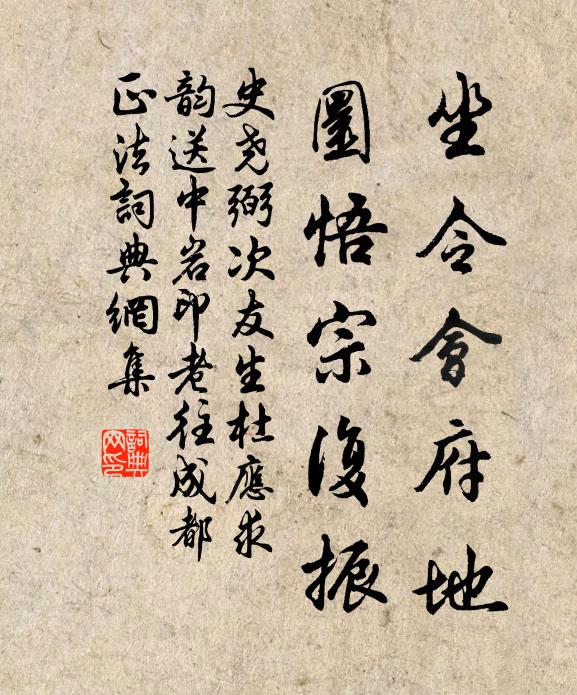 坐令會府地
圜悟宗復振
史堯弼次友生杜應求
韵送中岩印老往成都
正法詞典網集
詞典
网印